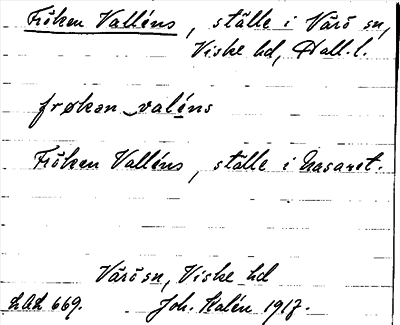 Fröken Valléns, ställe i Värö sn,
Viske hd, Hall. l.
frøken valéns
Fröken Valléns, ställe i Nasaret.
Värö sn, Viske hd
669. Joh. Kalén 1917.